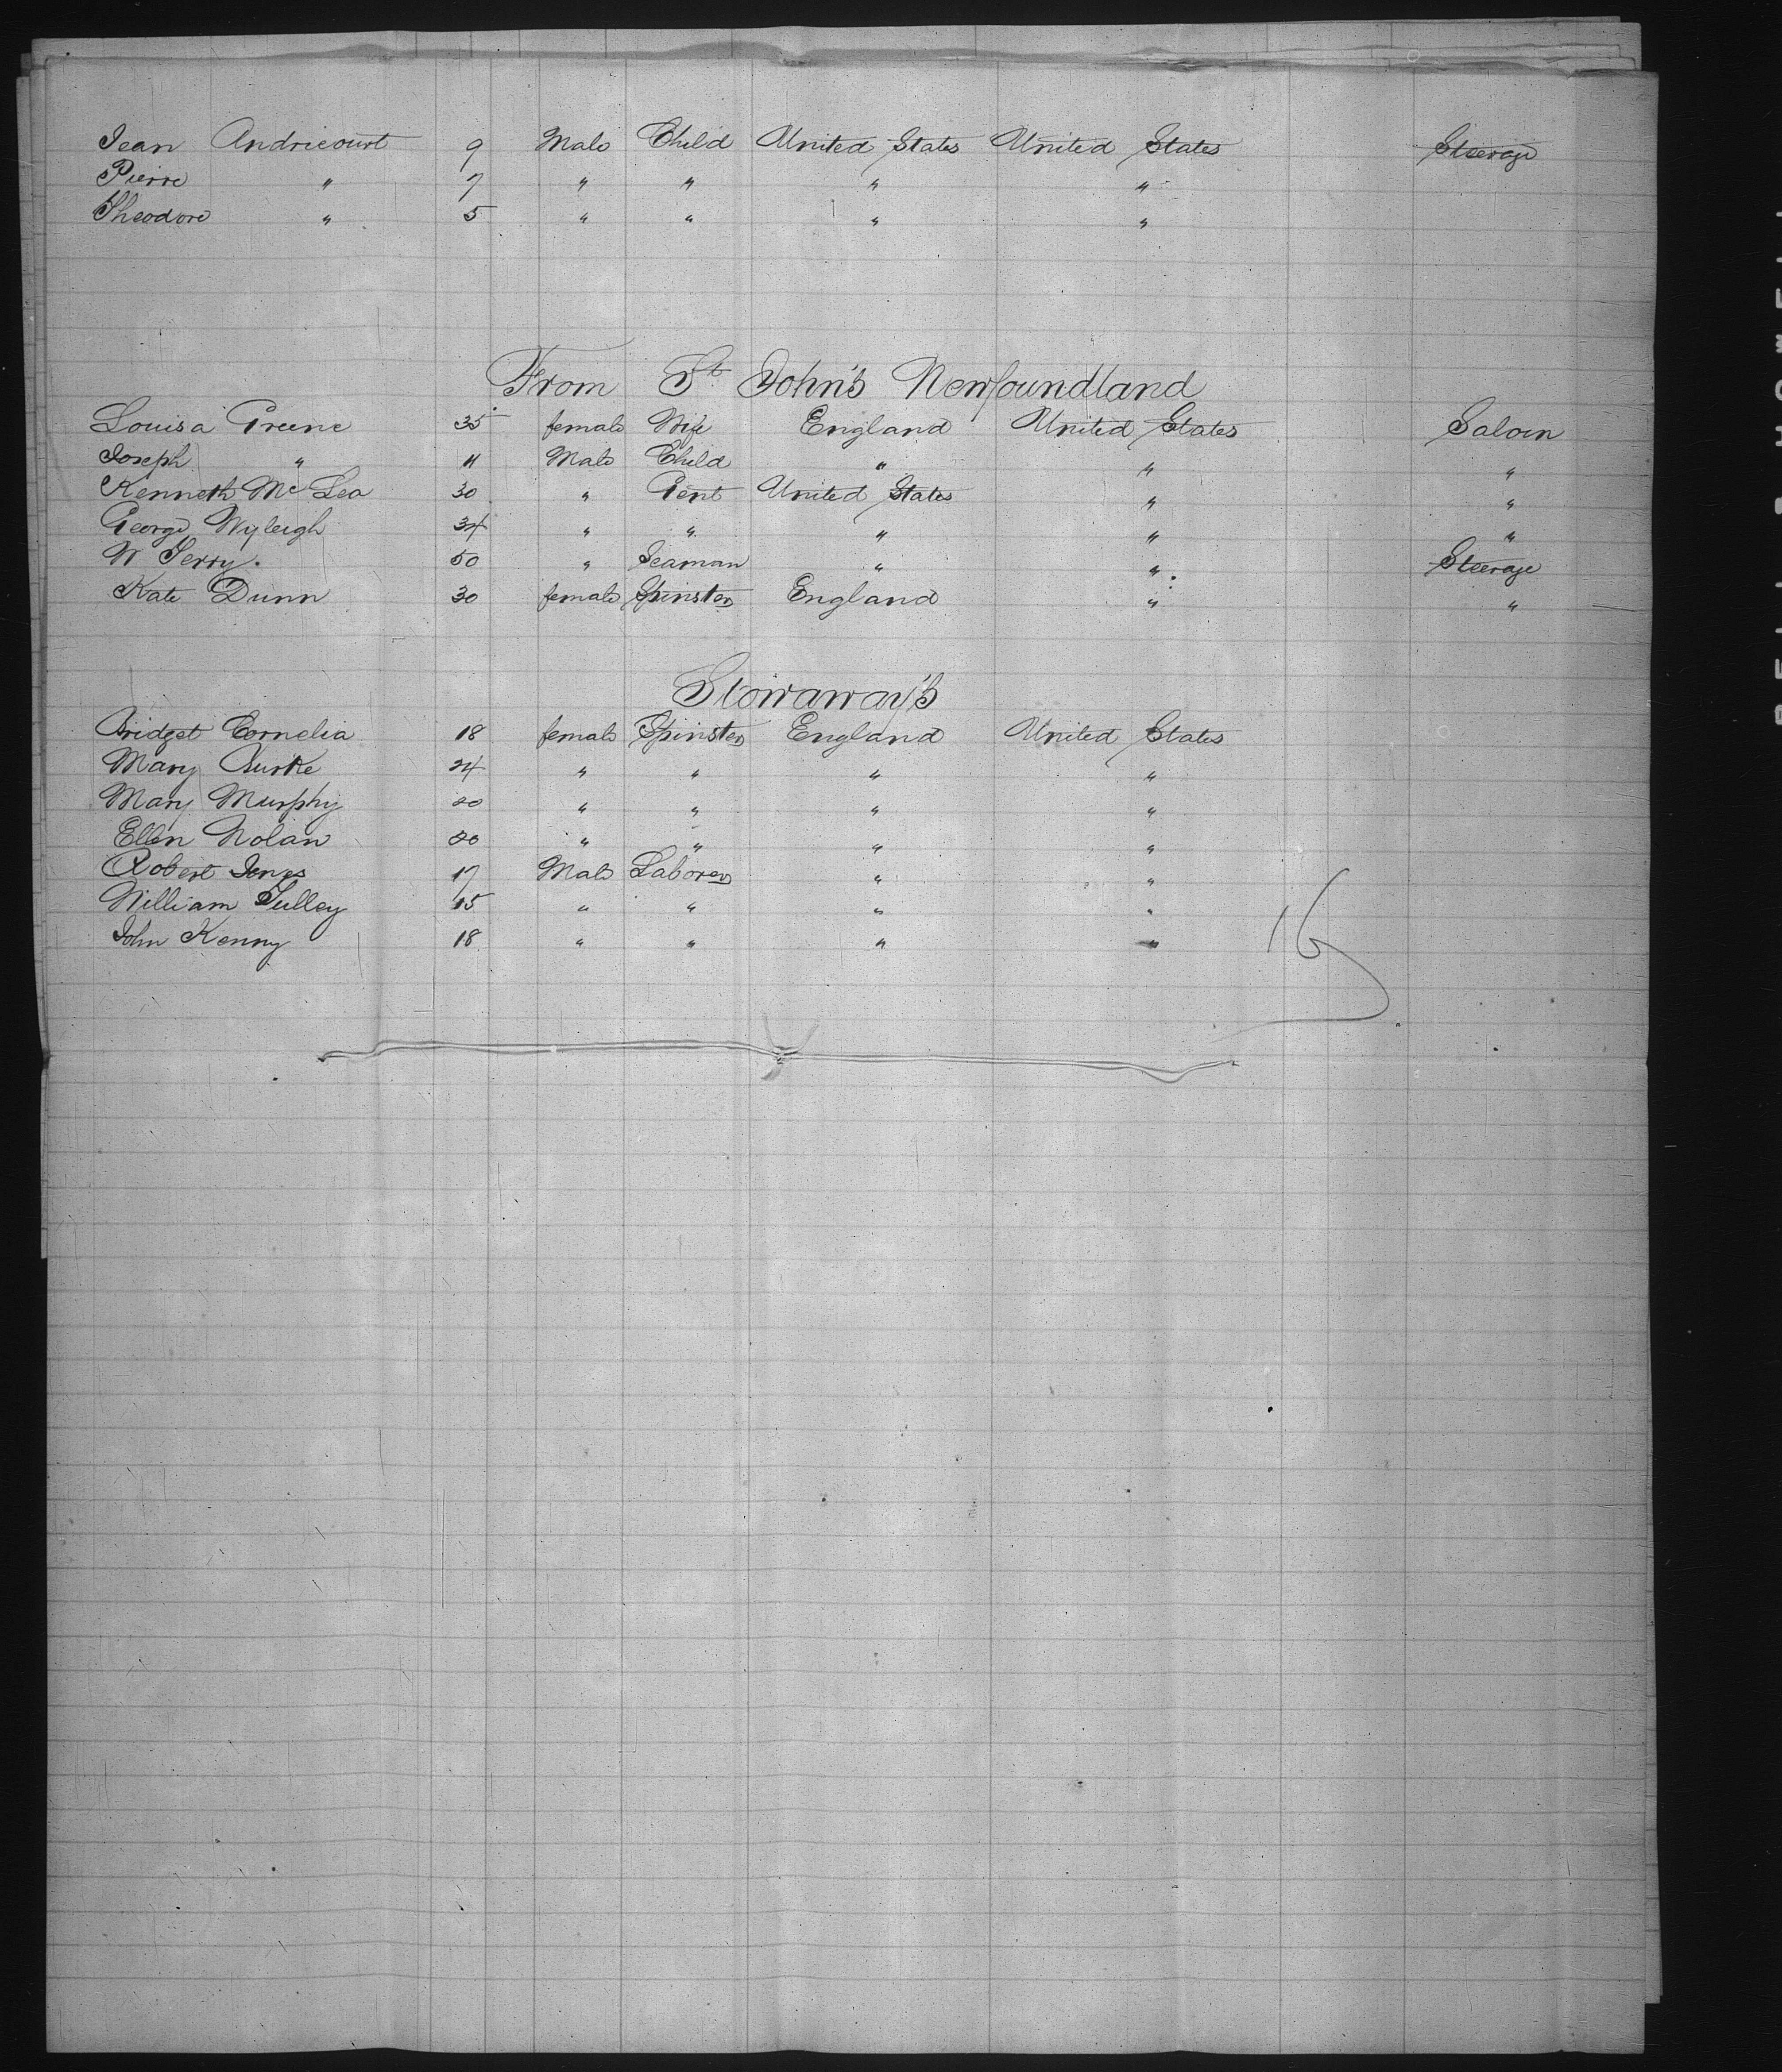 Jean Andricourt 9 Male Child United States United States Steerage
Pierre " 7 " " " "
Theodore " 5 " " " "
From St John's Newfoundland
Louisa Greene 35 female Wife England United States Saloon
Joseph " 11 Male Child " " "
Kenneth Mc Lea 30 " Gent United States " "
George Wyleigh 34 " " " " "
W Terry. 50 " Seaman " " Steerage
Kate Dunn 30 female Spinster England " "
Stowaway's
Bridget Cornelia 18 female Spinster England United States
Mary Burke 24 " " " "
Mary Murphy 20 " " " "
Ellen Nolan 20 " " " "
Robert Jones 17 Male Laborer " "
William Tulley 15 " " " "
John Kenny 18 " " " "
16